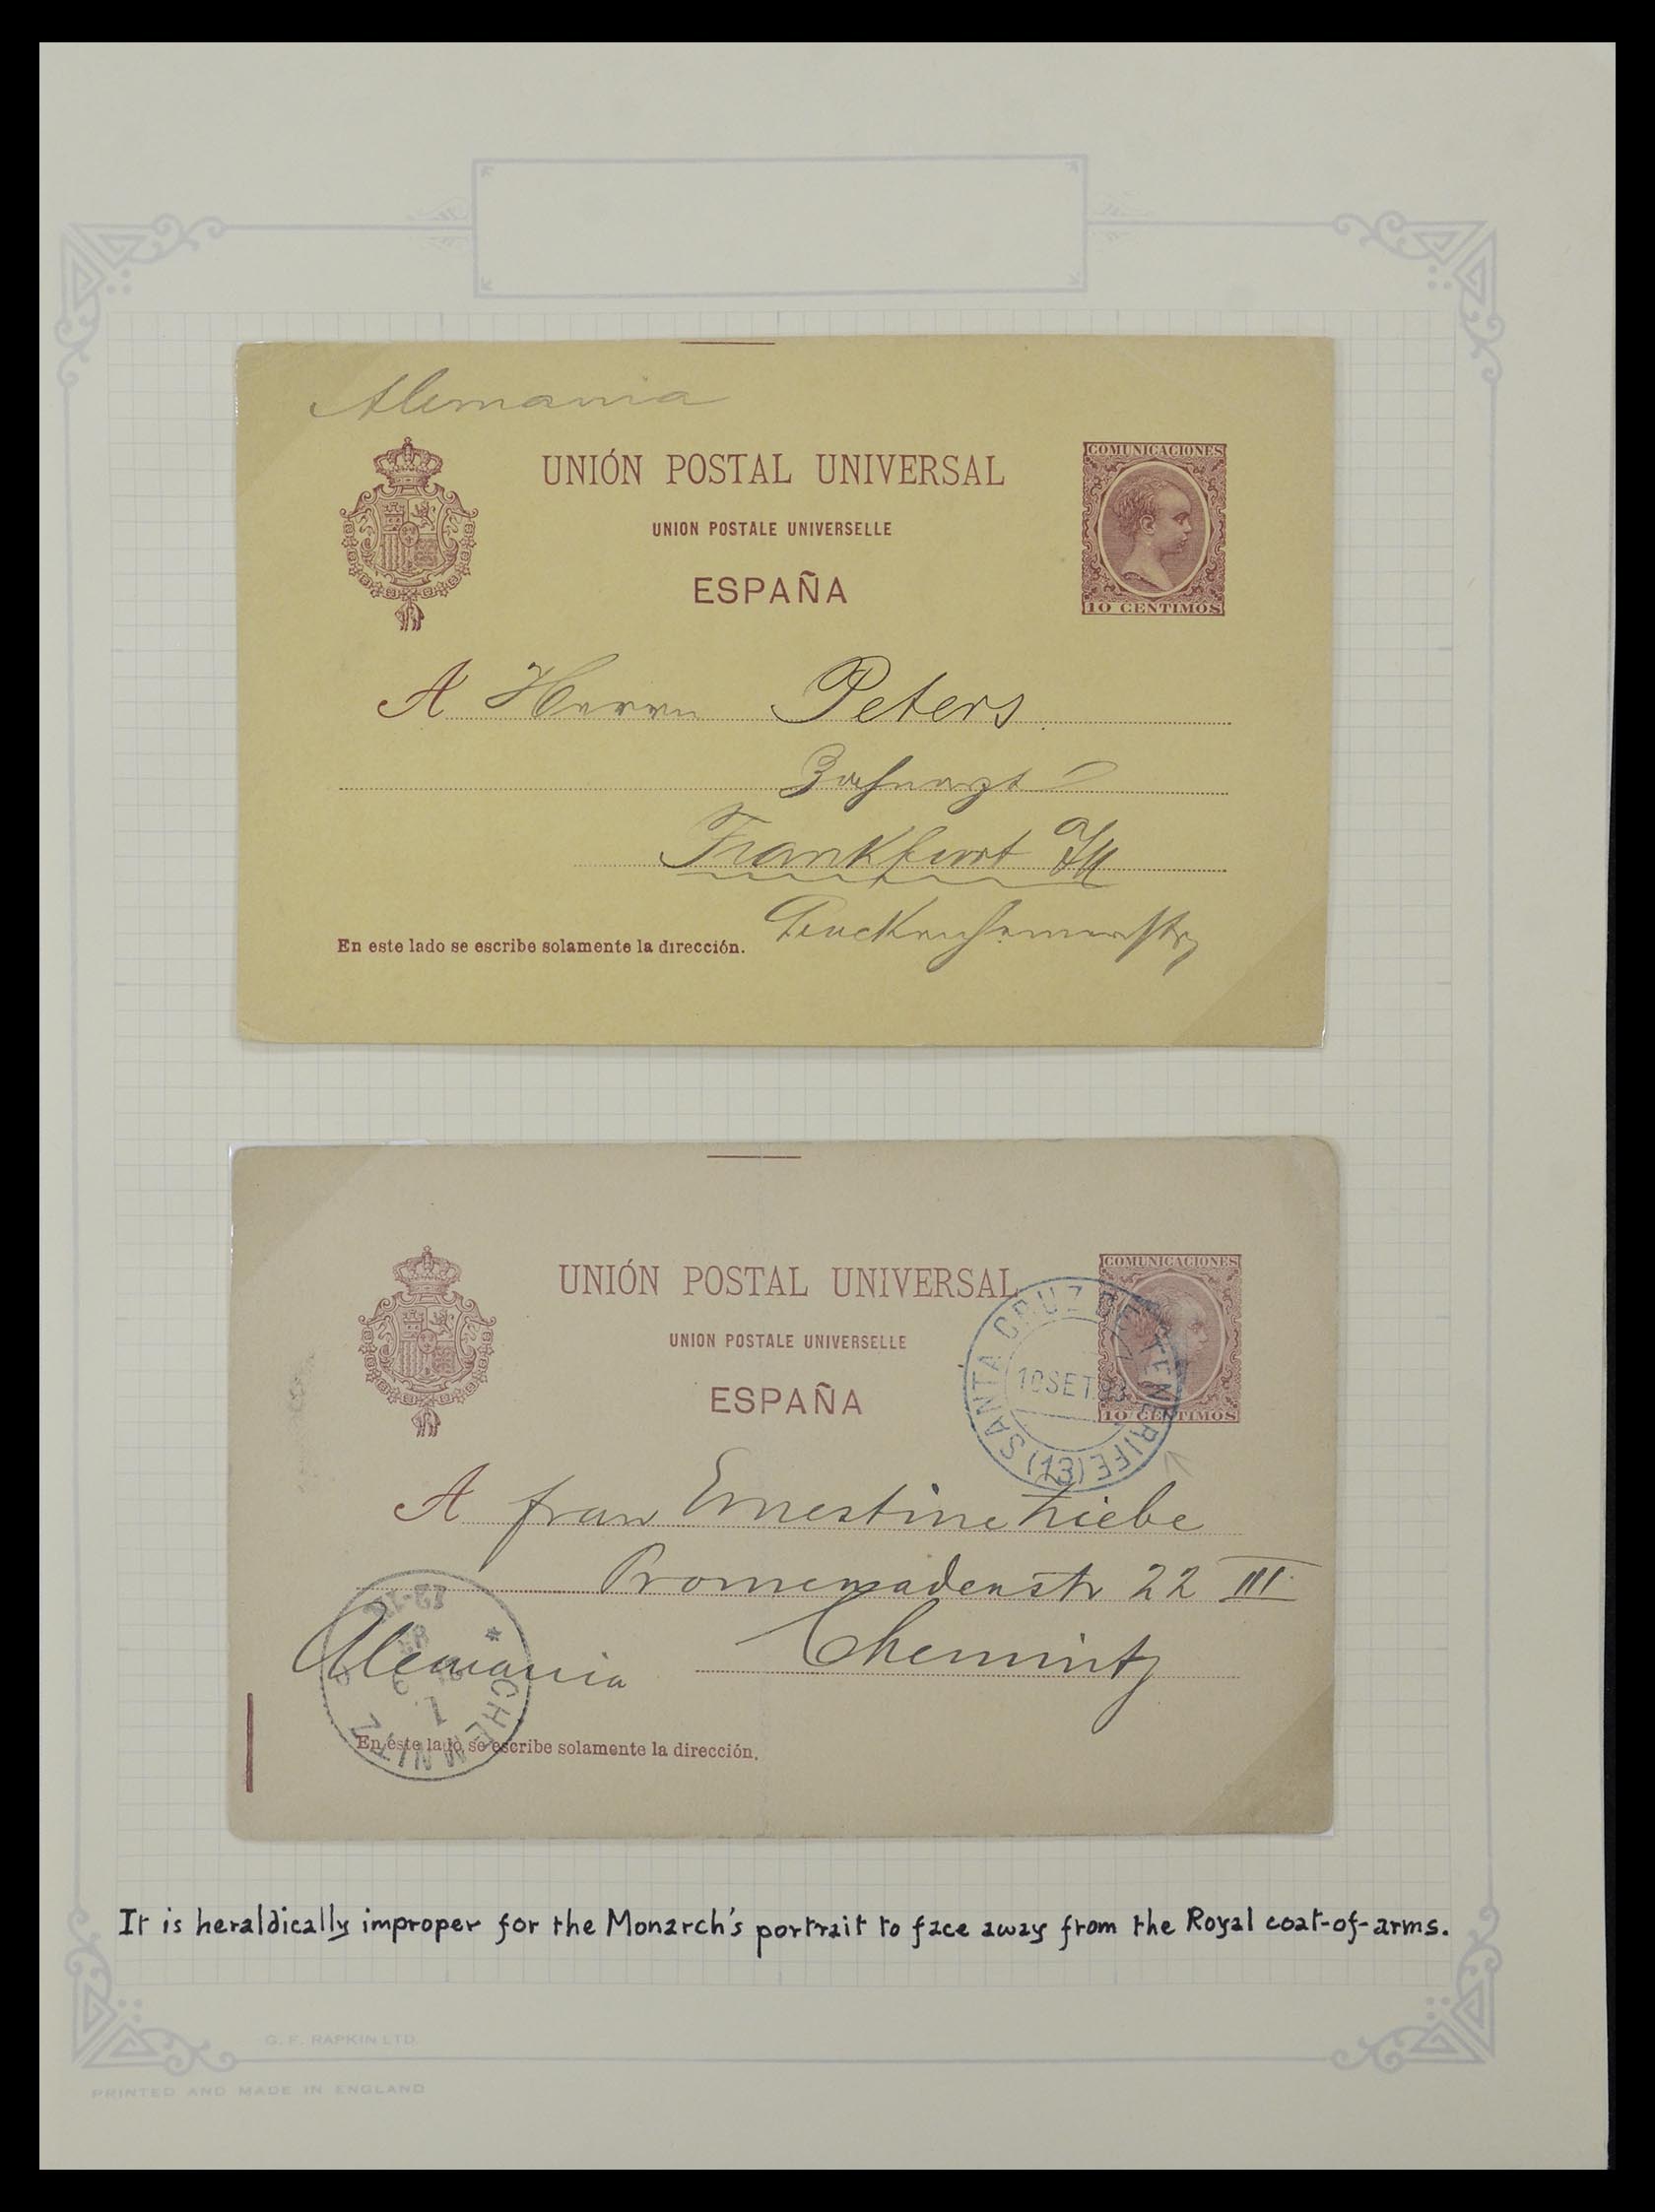 Alemania
COMUNICACIONES
UNIÓN POSTAL UNIVERSAL
UNION POSTALE UNIVERSELLE
ESPAÑA
10 CENTIMOS
A Herrn Peters
Zahnarzt
Frankfurt a/M
En este lado se escribe solamente la dirección.
COMUNICACIONES
UNIÓN POSTAL UNIVERSAL
UNION POSTALE UNIVERSELLE
ESPAÑA
10 CENTIMOS
SANTA CRUZ DE TENERIFE (13)
10 SET. 93
A frau Ernestine Liebe
Promenadenstr 22 III
Alemania Chemnitz
CHEMNITZ
En este lado se escribe solamente la dirección.
It is heraldically improper for the Monarch's portrait to face away from the Royal coat-of-arms.
G. F. RAPKIN LTD.
PRINTED AND MADE IN ENGLAND